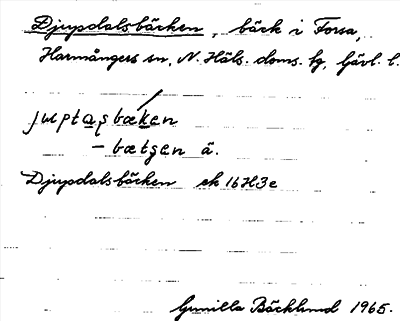 Djupdalsbäcken, bäck i Forsa,
Harmångers sn, N. Häls. doms. fg, Gävl. l.
juptasbæken
– bætsen ä.
Djupdalsbäcken ek 16H3e
Gunilla Bäcklund 1965.